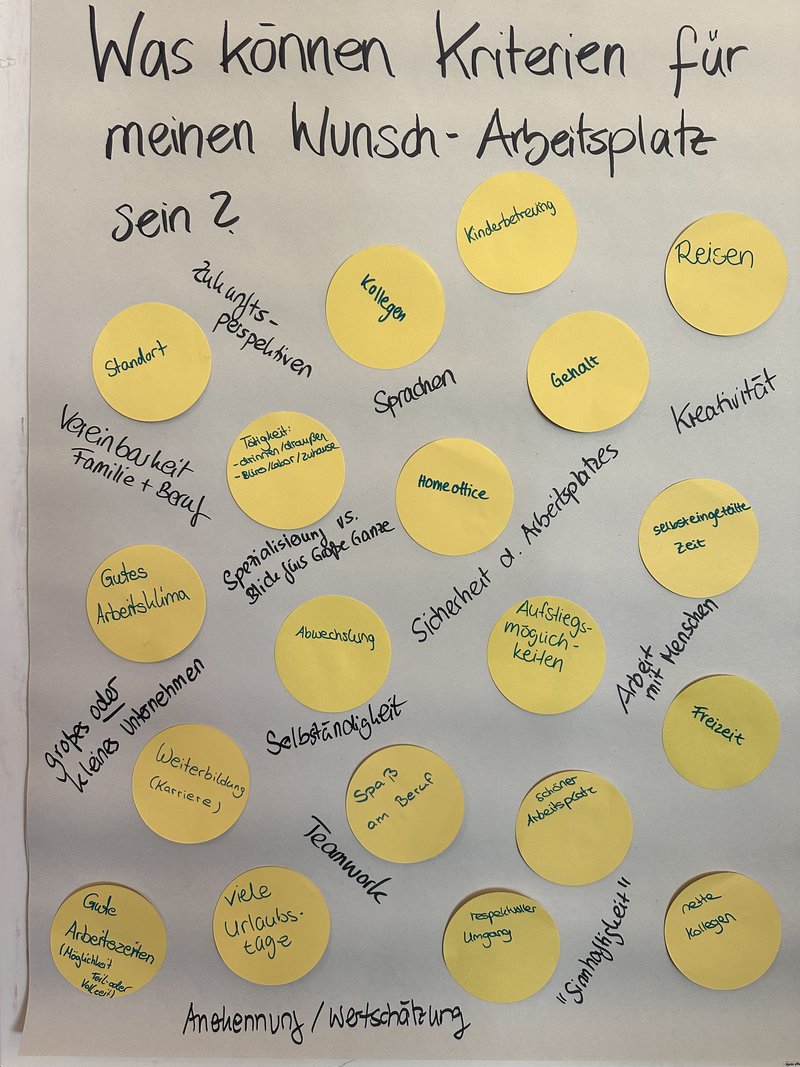 Was können Kriterien für
meinen Wunsch-Arbeitsplatz
sein?
Kinderbetreuung
Reisen
Zukunfts-
perspektiven
Kollegen
Standort
Sprachen
Gehalt
Kreativität
Vereinbarkeit
Familie + Beruf
Tätigkeit:
- drinnen/draußen
- Büro/Labor/Zuhause
Homeoffice
Spezialisierung vs.
Blick fürs Große Ganze
Sicherheit d. Arbeitsplatzes
selbsteingeteilte
Zeit
Gutes
Arbeitsklima
Abwechslung
Aufstiegs-
möglich-
keiten
Arbeit
mit Menschen
großes oder
kleines Unternehmen
Selbständigkeit
Freizeit
Weiterbildung
(Karriere)
Spaß
am Beruf
schöner
Arbeitsplatz
Teamwork
Gute
Arbeitszeiten
(Möglichkeit
Teil- oder
Vollzeit)
viele
Urlaubs-
tage
respektvoller
Umgang
"Sinnhaftigkeit"
nette
Kollegen
Anerkennung/Wertschätzung